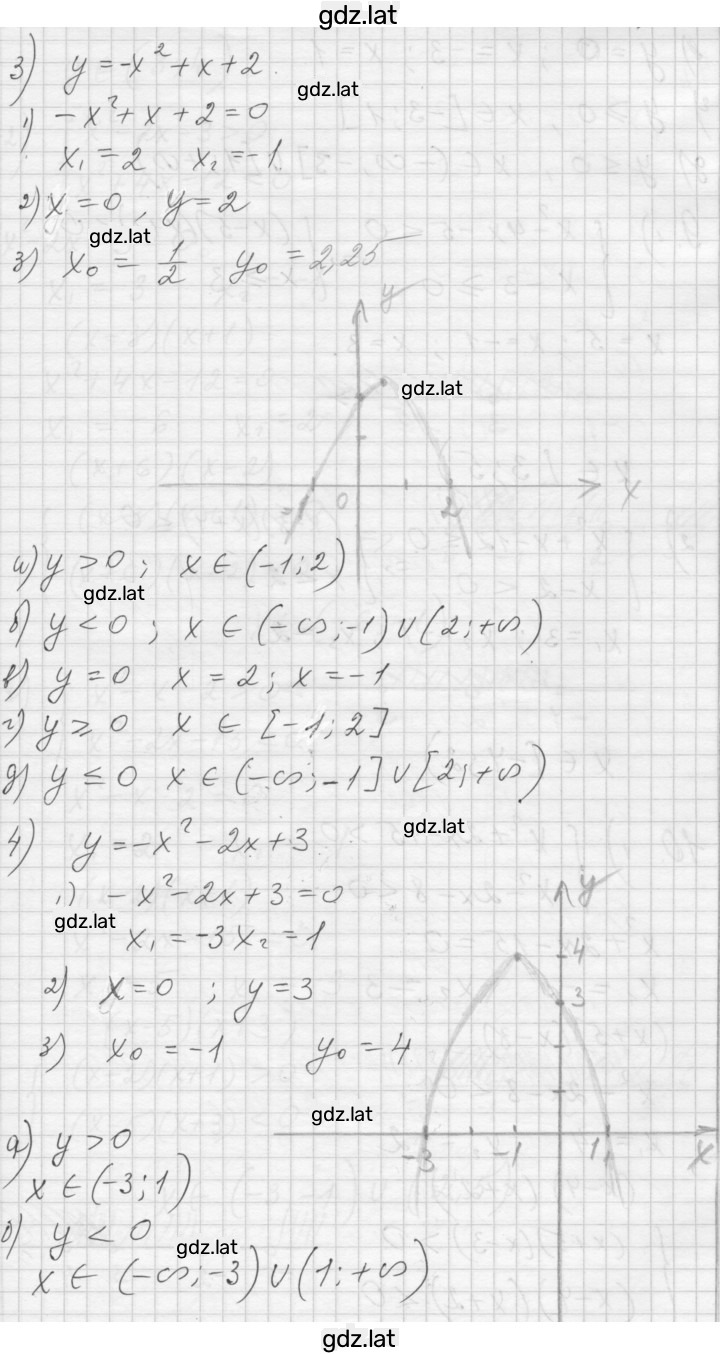 gdz.lat
3) y = -x² + x + 2
gdz.lat
1) -x² + x + 2 = 0
x₁ = 2 x₂ = -1
2) x = 0, y = 2
gdz.lat
3) x₀ = 1/2 y₀ = 2,25
y
gdz.lat
-1 0 2 x
а) y > 0; x ∈ (-1; 2)
gdz.lat
б) y < 0; x ∈ (-∞; -1) ∪ (2; +∞)
в) y = 0 x = 2; x = -1
г) y ≥ 0 x ∈ [-1; 2]
д) y ≤ 0 x ∈ (-∞; -1] ∪ [2; +∞)
gdz.lat
4) y = -x² - 2x + 3
1) -x² - 2x + 3 = 0
gdz.lat
x₁ = -3 x₂ = 1
2) x = 0; y = 3
3) x₀ = -1 y₀ = 4
y
4
3
gdz.lat
-3 -1 1 x
а) y > 0
x ∈ (-3; 1)
б) y < 0
gdz.lat
x ∈ (-∞; -3) ∪ (1; +∞)
gdz.lat